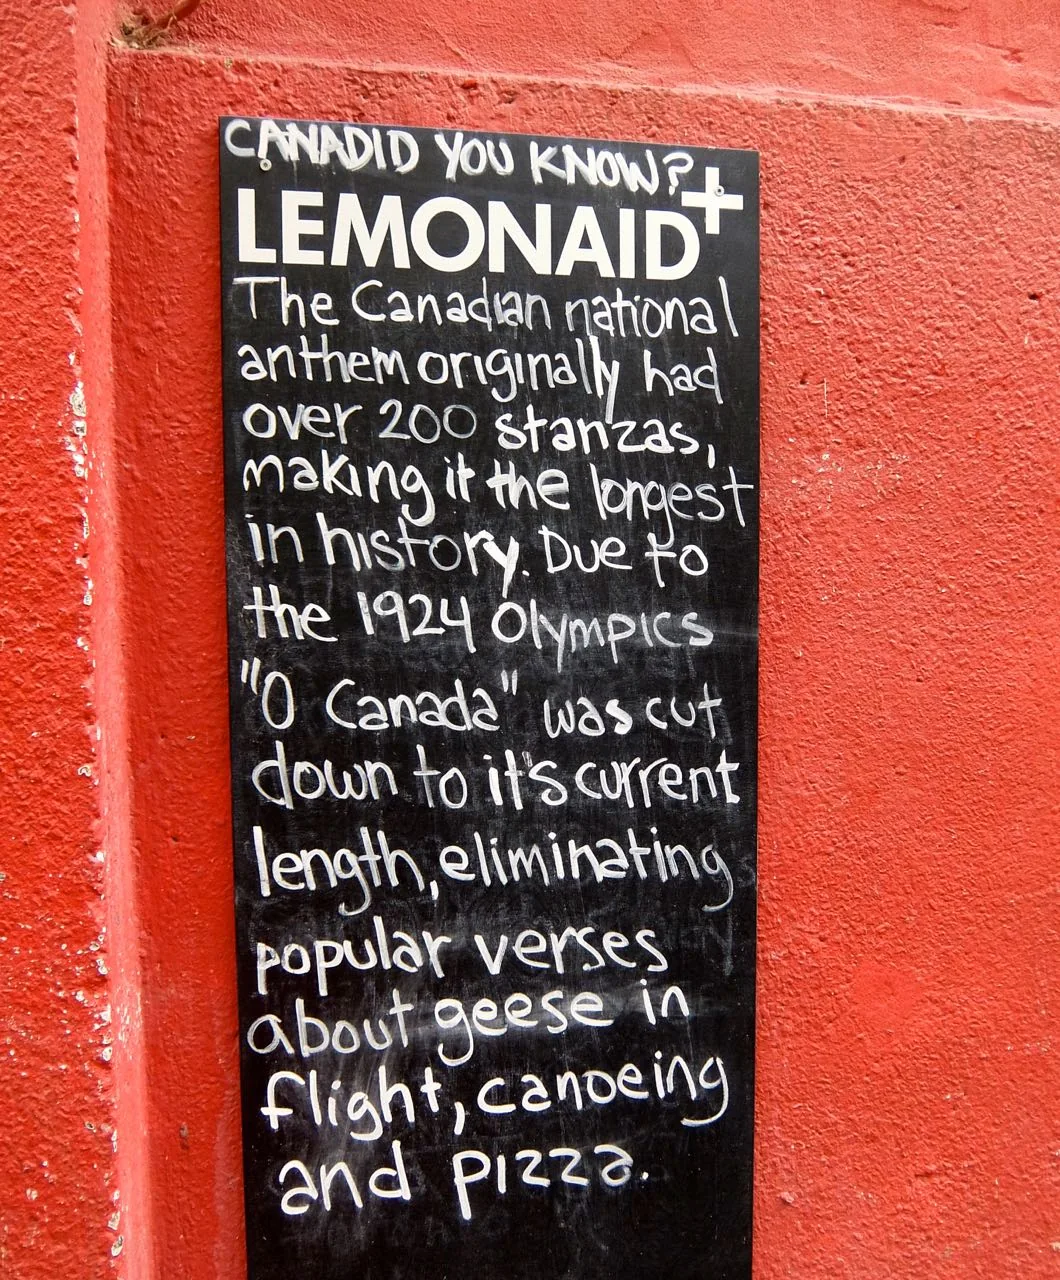 CANADID YOU KNOW?
LEMONAID+
The Canadian national
anthem originally had
over 200 stanzas,
making it the longest
in history. Due to
the 1924 Olympics
"O Canada" was cut
down to it's current
length, eliminating
popular verses
about geese in
flight, canoeing
and pizza.